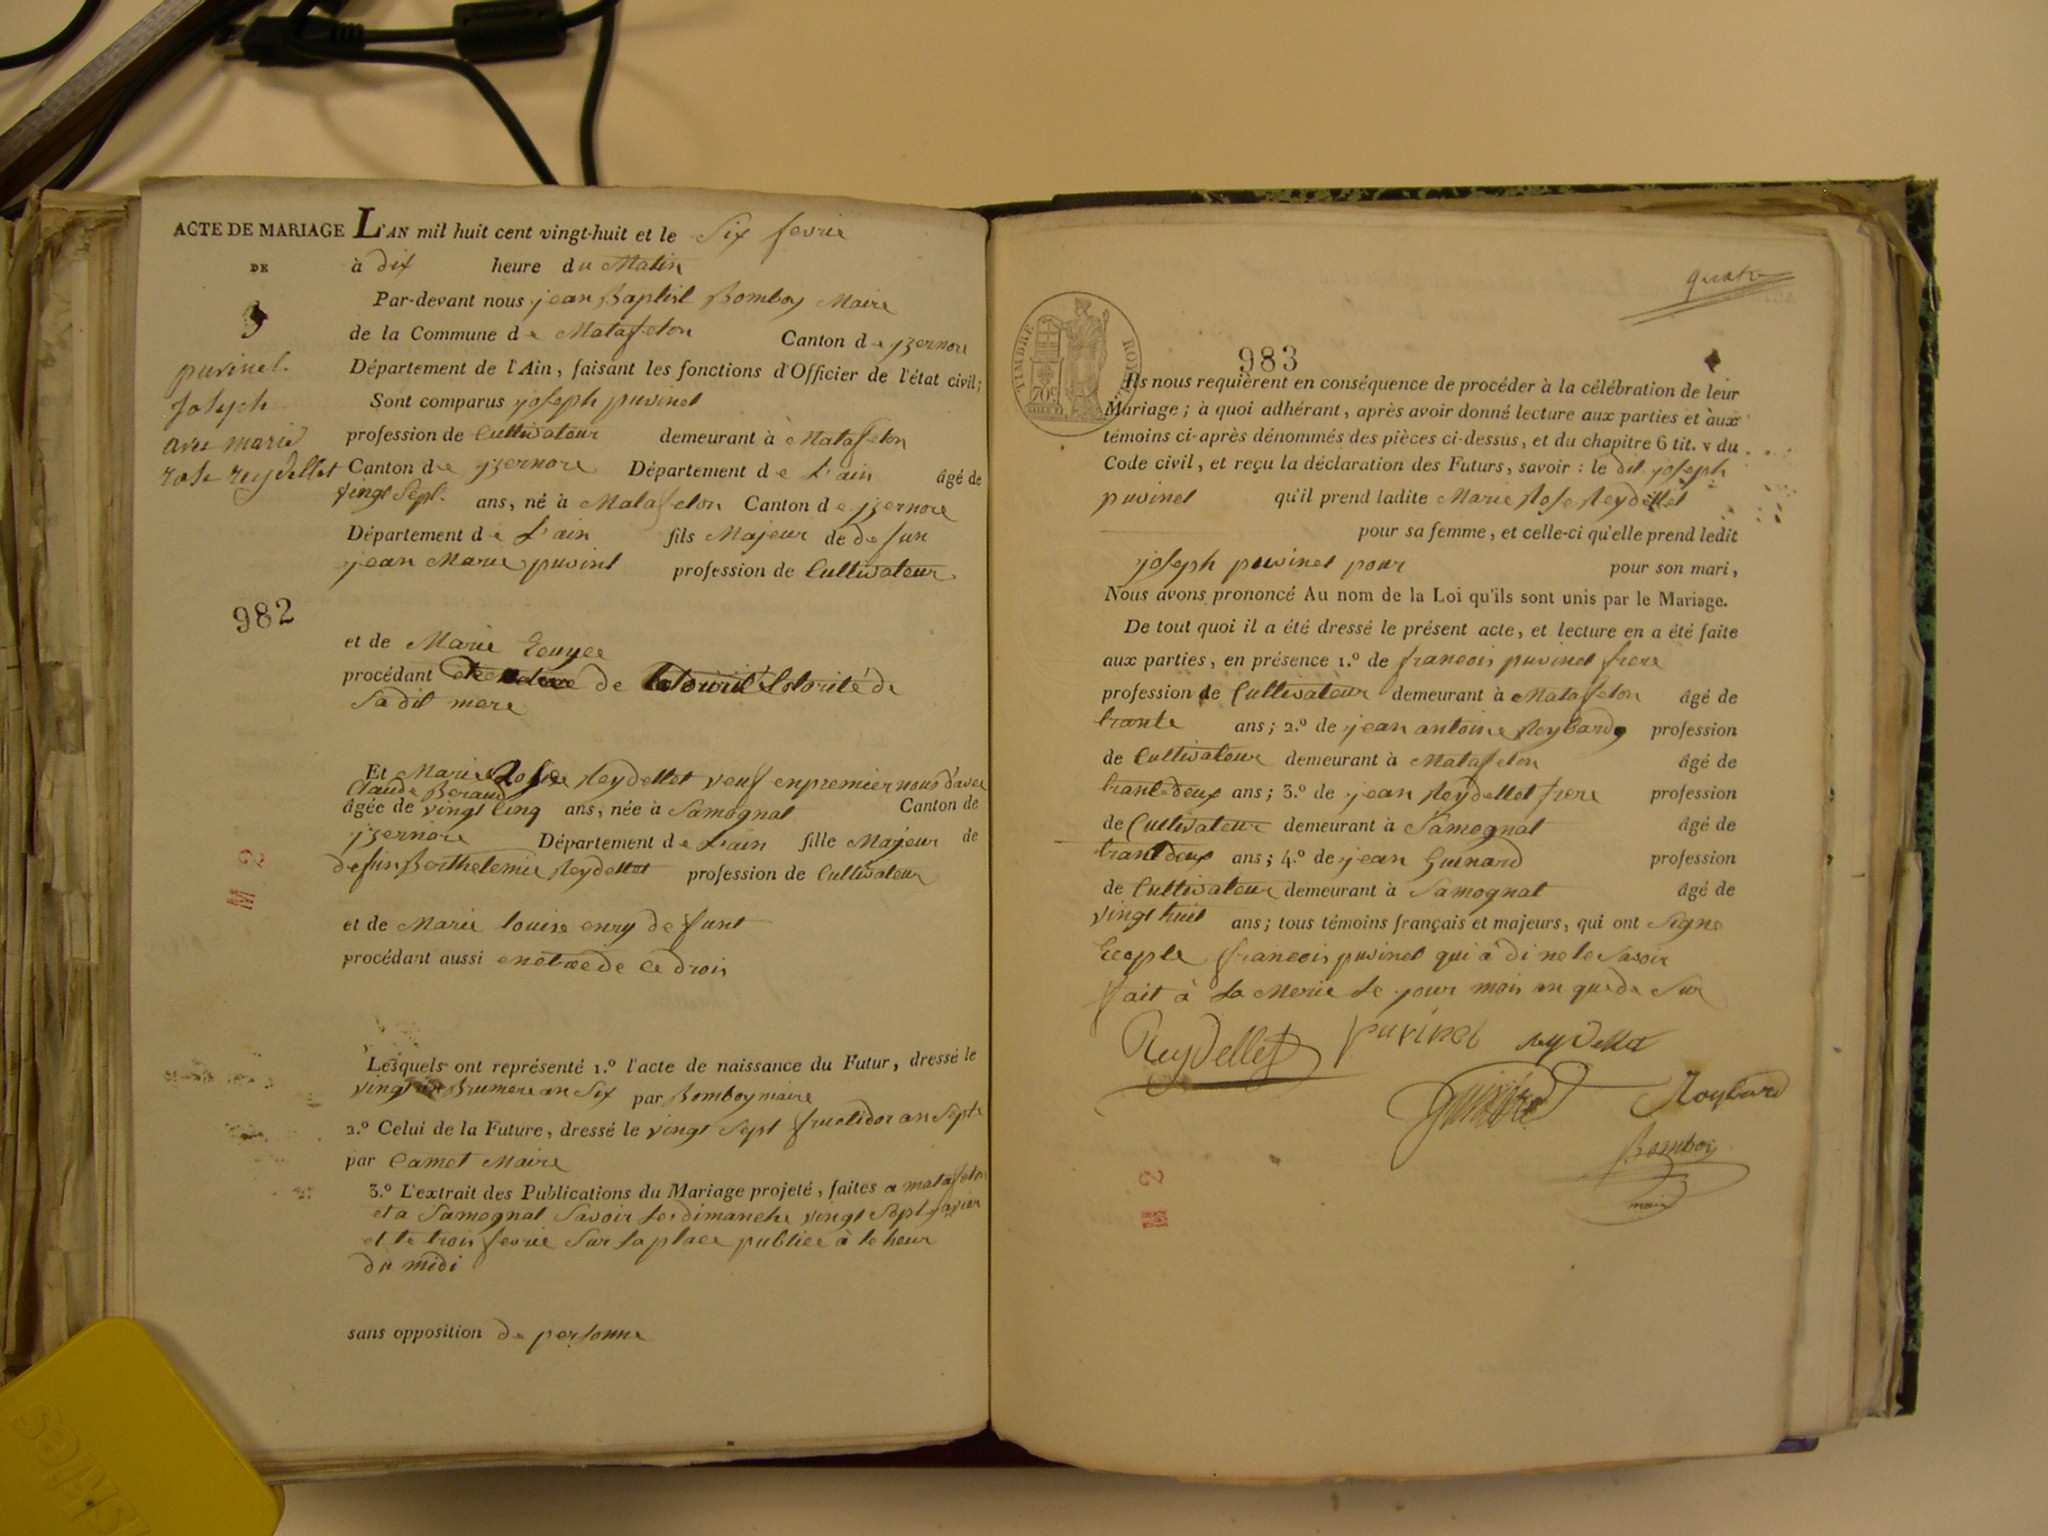 ACTE DE MARIAGE
DE
puvinel
Joseph
avec marie
rose reydellet
L'AN mil huit cent vingt-huit et le Six fevrie
à dix heure du Matin
Par-devant nous jean Baptist Bomboy Maire
de la Commune de Matafelon Canton de yzernore
Département de l'Ain, faisant les fonctions d'Officier de l'état civil;
Sont comparus yoseph puvinel
profession de Cultivateur demeurant à Matafelon
Canton de yzernore Département de L'ain âgé de
vingt Sept. ans, né à Matafelon Canton de yzernore
Département de L'ain fils Majeur de defun
jean Marie puvinl profession de Cultivateur
982
et de Marie
procédant de Lotorité de
Sadit mere
Et Marie Rose Reydellet veuf enpremier nous d'avec
Claude Beraud
âgée de vingt Cinq ans, née à Samognat Canton de
yzernore Département de L'ain fille Majeur de
defun Berthelemie Reydellet profession de Cultivateur
et de Marie louise enry defunt
procédant aussi de ce drois
Lesquels ont représenté 1.º l'acte de naissance du Futur, dressé le
vingt Brumere an Six par Bomboy maire
2.º Celui de la Future, dressé le vingt Sept fructidor an Sept
par Camet Maire
3.º L'extrait des Publications du Mariage projeté, faites a matafelon
et a Samognat Savoir Le dimanche vingt Sept janvier
et le trois fevrie Sur la place publice à le heur
du midi
sans opposition de personne
quatre
TIMBRE ROYAL
70c
983
Ils nous requièrent en conséquence de procéder à la célébration de leur
Mariage; à quoi adhérant, après avoir donné lecture aux parties et aux
témoins ci-après dénommés des pièces ci-dessus, et du chapitre 6 tit. v du
Code civil, et reçu la déclaration des Futurs, savoir: le dit yoseph
puvinel qu'il prend ladite Marie Rose Reydellet
pour sa femme, et celle-ci qu'elle prend ledit
joseph puvinel pour pour son mari,
Nous avons prononcé Au nom de la Loi qu'ils sont unis par le Mariage.
De tout quoi il a été dressé le présent acte, et lecture en a été faite
aux parties, en présence 1.º de francois puvinel frere
profession de Cultivateur demeurant à Matafelon âgé de
trante ans; 2.º de jean antoine Reybard profession
de Cultivateur demeurant à Matafelon âgé de
trantedeux ans; 3.º de jean Reydellet frere profession
de Cultivateur demeurant à Samognat âgé de
trantdeux ans; 4.º de jean Guinard profession
de Cultivateur demeurant à Samognat âgé de
vingt huit ans; tous témoins français et majeurs, qui ont Signe
Ecepte francois puvinel qui a di ne le Savoir
fait à La Merie Le jour mois en que de Sur
Reydellet puvinel reydellet
Guinard Reybard
Bomboy
maire